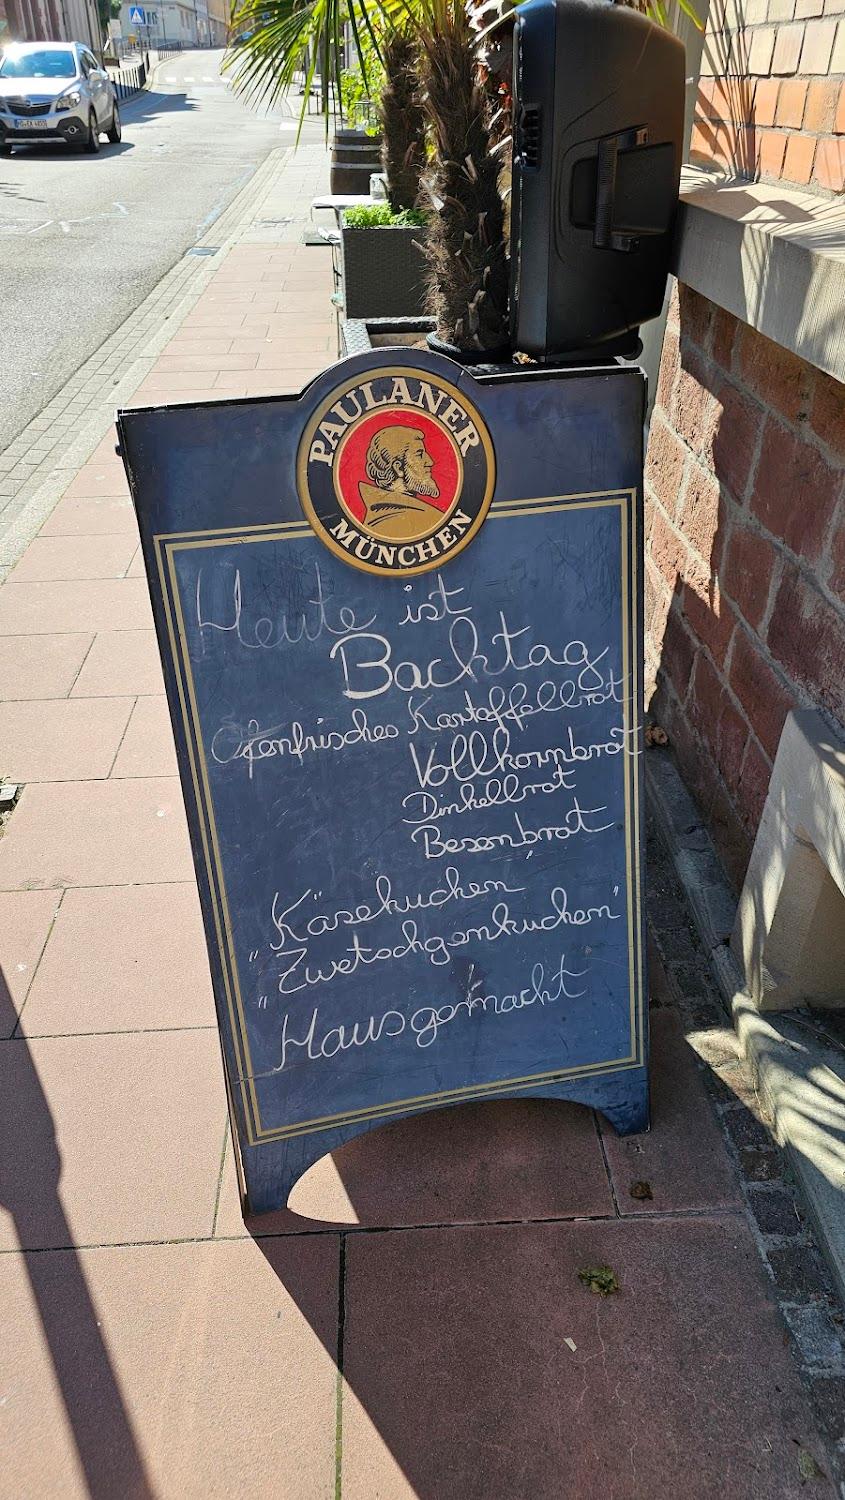 PAULANER
MÜNCHEN
Heute ist
Backtag
Ofenfrisches Kartoffelbrot
Vollkornbrot
Dinkelbrot
Besenbrot
"Käsekuchen"
"Zwetschgenkuchen"
Hausgemacht